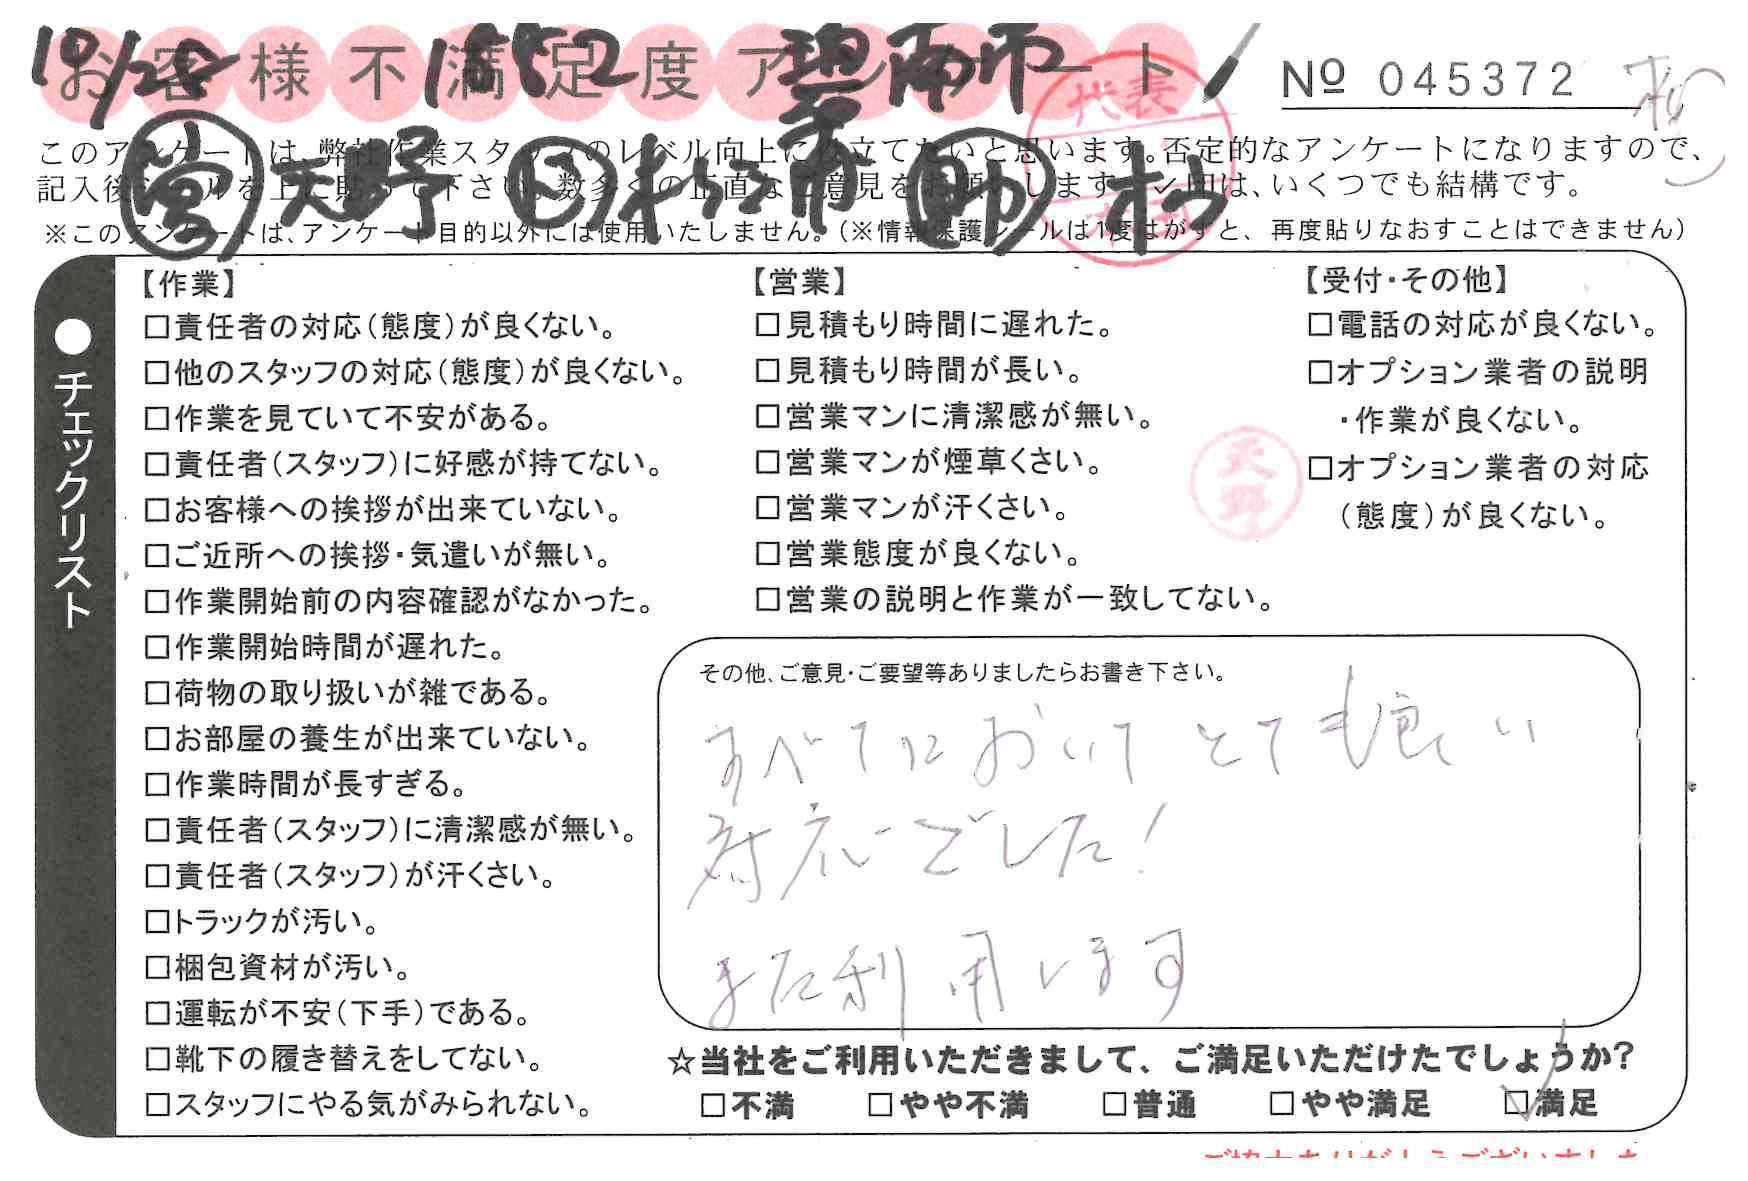 お客様不満足度アンケート
10/28
Nº 045372
代表
このアンケートは、弊社作業スタッフのレベル向上に役立てたいと思います。否定的なアンケートになりますので、
記入後シールを上に貼って下さい。数多くの正直なご意見をお願いします。レ印は、いくつでも結構です。
営 天野
※このアンケートは、アンケート目的以外には使用いたしません。(※情報保護シールは1度はがすと、再度貼りなおすことはできません)
●チェックリスト
【作業】
□責任者の対応(態度)が良くない。
□他のスタッフの対応(態度)が良くない。
□作業を見ていて不安がある。
□責任者(スタッフ)に好感が持てない。
□お客様への挨拶が出来ていない。
□ご近所への挨拶・気遣いが無い。
□作業開始前の内容確認がなかった。
□作業開始時間が遅れた。
□荷物の取り扱いが雑である。
□お部屋の養生が出来ていない。
□作業時間が長すぎる。
□責任者(スタッフ)に清潔感が無い。
□責任者(スタッフ)が汗くさい。
□トラックが汚い。
□梱包資材が汚い。
□運転が不安(下手)である。
□靴下の履き替えをしてない。
□スタッフにやる気がみられない。
【営業】
□見積もり時間に遅れた。
□見積もり時間が長い。
□営業マンに清潔感が無い。
□営業マンが煙草くさい。
□営業マンが汗くさい。
□営業態度が良くない。
□営業の説明と作業が一致してない。
【受付・その他】
□電話の対応が良くない。
□オプション業者の説明
・作業が良くない。
□オプション業者の対応
(態度)が良くない。
天野
その他、ご意見・ご要望等ありましたらお書き下さい。
すべてにおいてとても良い
対応でした!
また利用します
☆当社をご利用いただきまして、ご満足いただけたでしょうか?
□不満 □やや不満 □普通 □やや満足 ☑満足
ご協力ありがとうございました